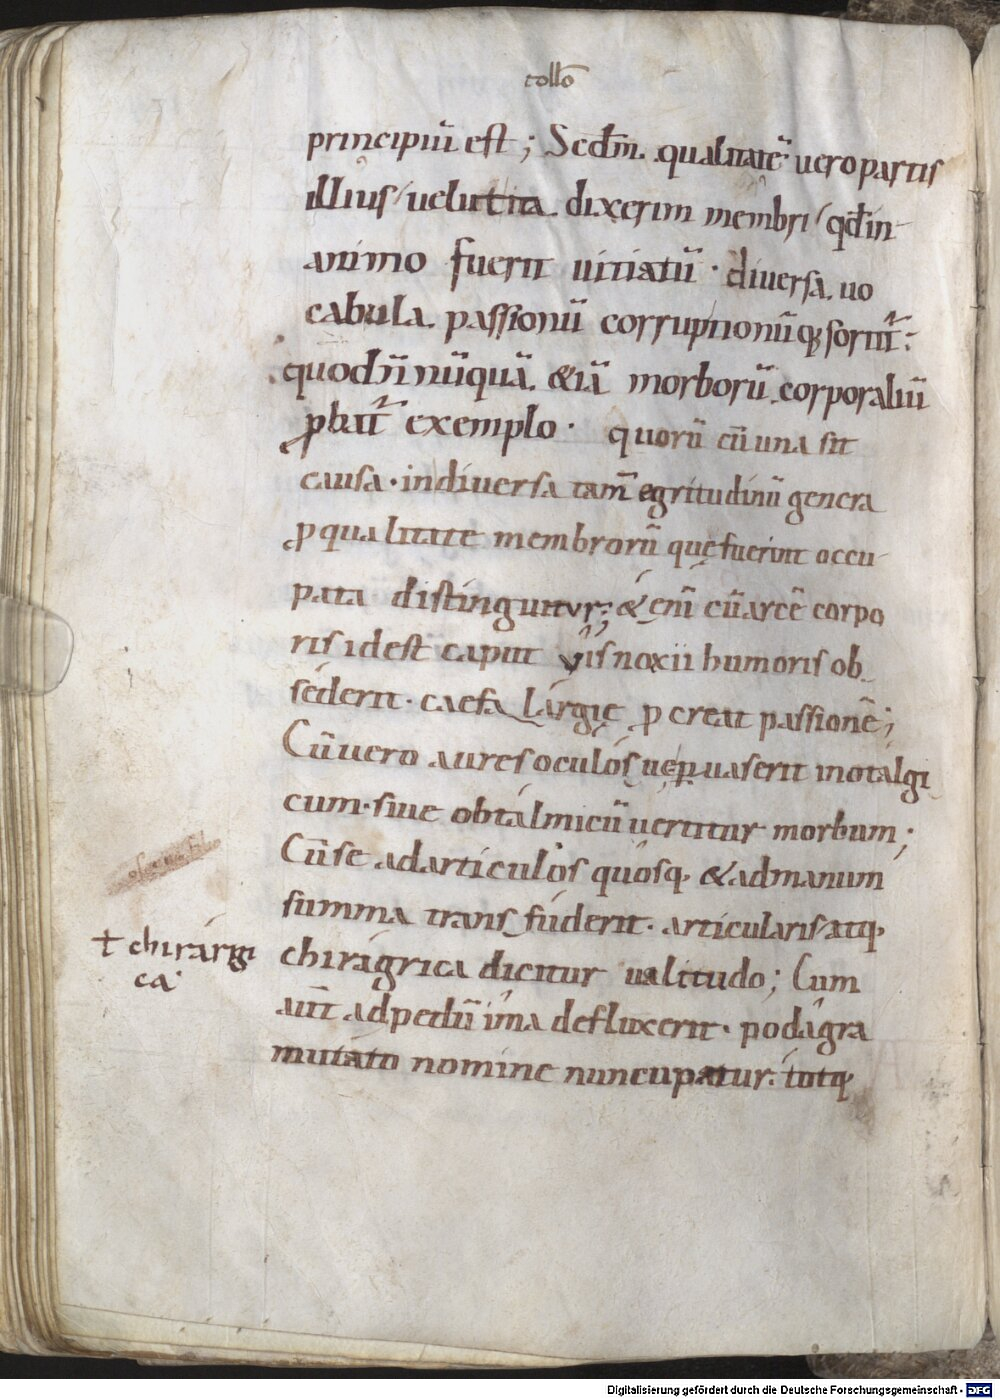 collō
principiū est; Scdm̄. qualitatē uero partis
illius uelut ita dixerim membri qd̄ in
animo fuerit uitiatū · diuersa. uo
cabula. passionū corruptionūq; sortit̄:
quod ñ nūquā. &iā morborū. corporaliū
ꝓbat̄ exemplo · quorū cū una sit
causa · indiuersa tam̄ egritudinū genera
ꝓ qualitate membrorū quę fuerint occu-
pata distinguntur; & eni cū arcē corpo
ris idest caput uis noxii humoris ob
séderit · caefa largię ꝓ creat passionē;
Cū uero aures oculos ue ꝑuaserit inotalgi
cum · siue obtalmicū uertitur morbum;
Cū se adarticulos quosq; & admanum
summa trans fúderit · articularis atq;
chiragrica dicitur ualitudo; Cum
aut̄ adpedū ima defluxerit · podágra
mutáto nomine nuncupatur: totq;
ł chirárgi
ca
Digitalisierung gefördert durch die Deutsche Forschungsgemeinschaft - DFG